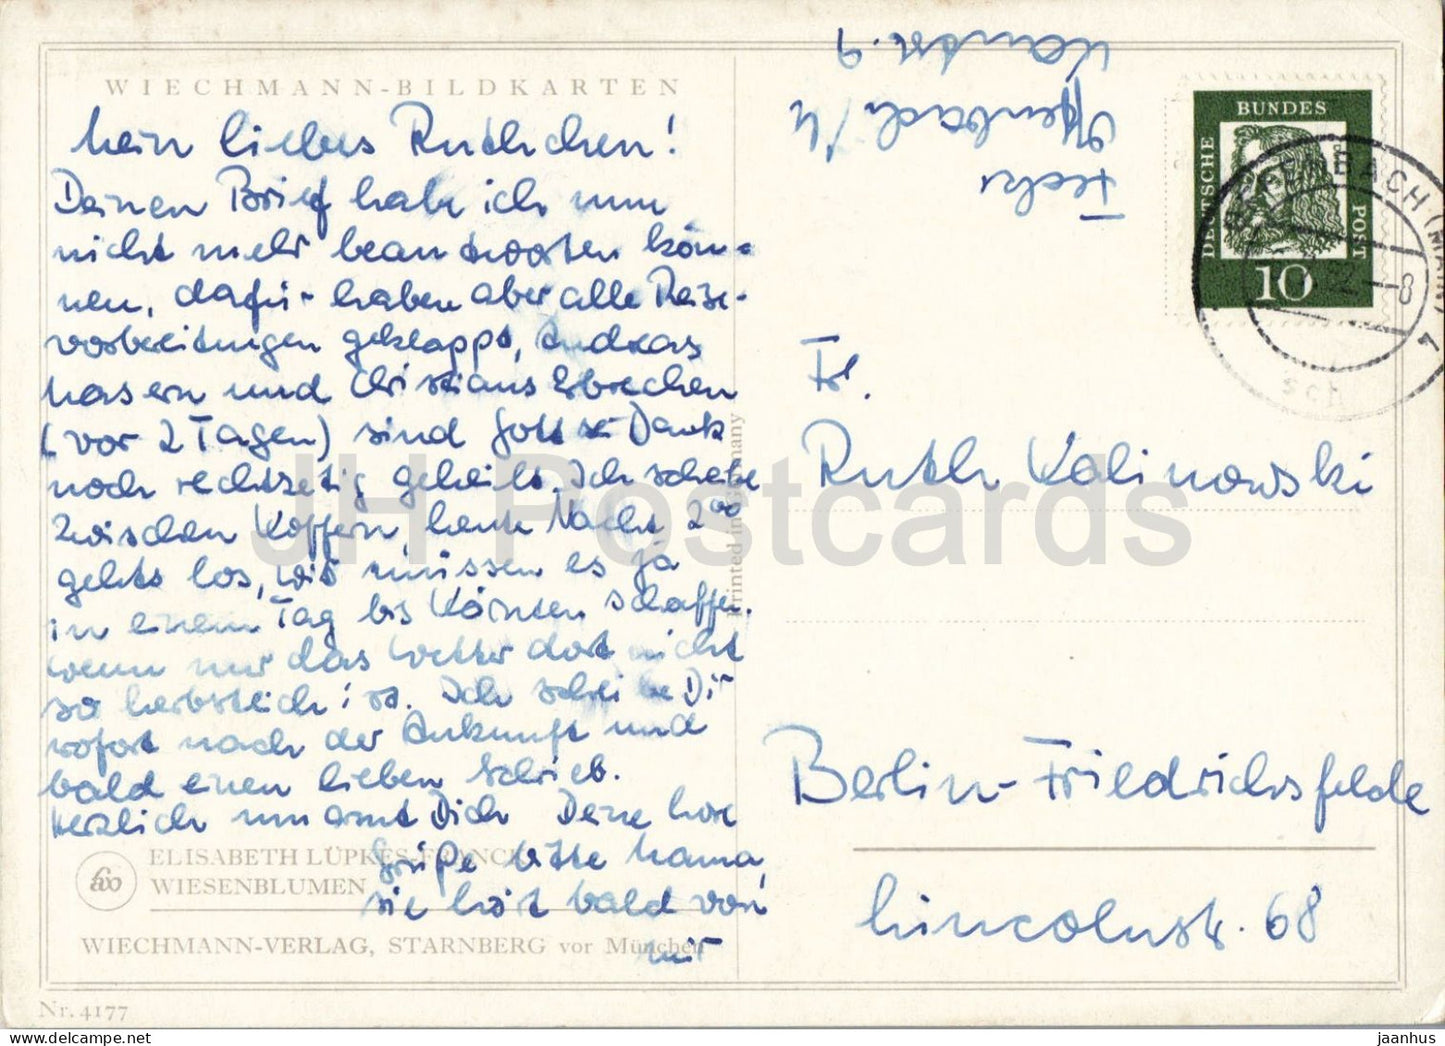 WIECHMANN-BILDKARTEN
Mein liebes Ruthchen!
Deinen Brief habe ich nun
nicht mehr beantworten kön=
nen, dafür haben aber alle Reise-
vorbereitungen geklappt, Andreas
Masern und Christians Erbrechen
(vor 2 Tagen) sind Gott sei Dank
noch rechtzeitig geheilt. Ich schreibe
zwischen Koffern, heute Nacht 2⁰⁰
gehts los, wir müssen es ja
in einem Tag bis Kärnten schaffen.
wenn nur das Wetter dort nicht
so herbstlich ist. Ich schreibe Dir
sofort nach der Ankunft und
bald einen lieben
Herzlich umarmt Dich Deine Lore
Grüße bitte Mama,
sie hört bald von
mir
ELISABETH LÜPKES-FRANCK
WIESENBLUMEN
WIECHMANN-VERLAG, STARNBERG vor München
Nr. 4177
Printed in Germany
Offenbach/M
DEUTSCHE
BUNDES
POST
10
Frl.
Ruth Kalinowski
Berlin-Friedrichsfelde
Lincolnstr. 68
JH Postcards
delcampe.net
jaanhus